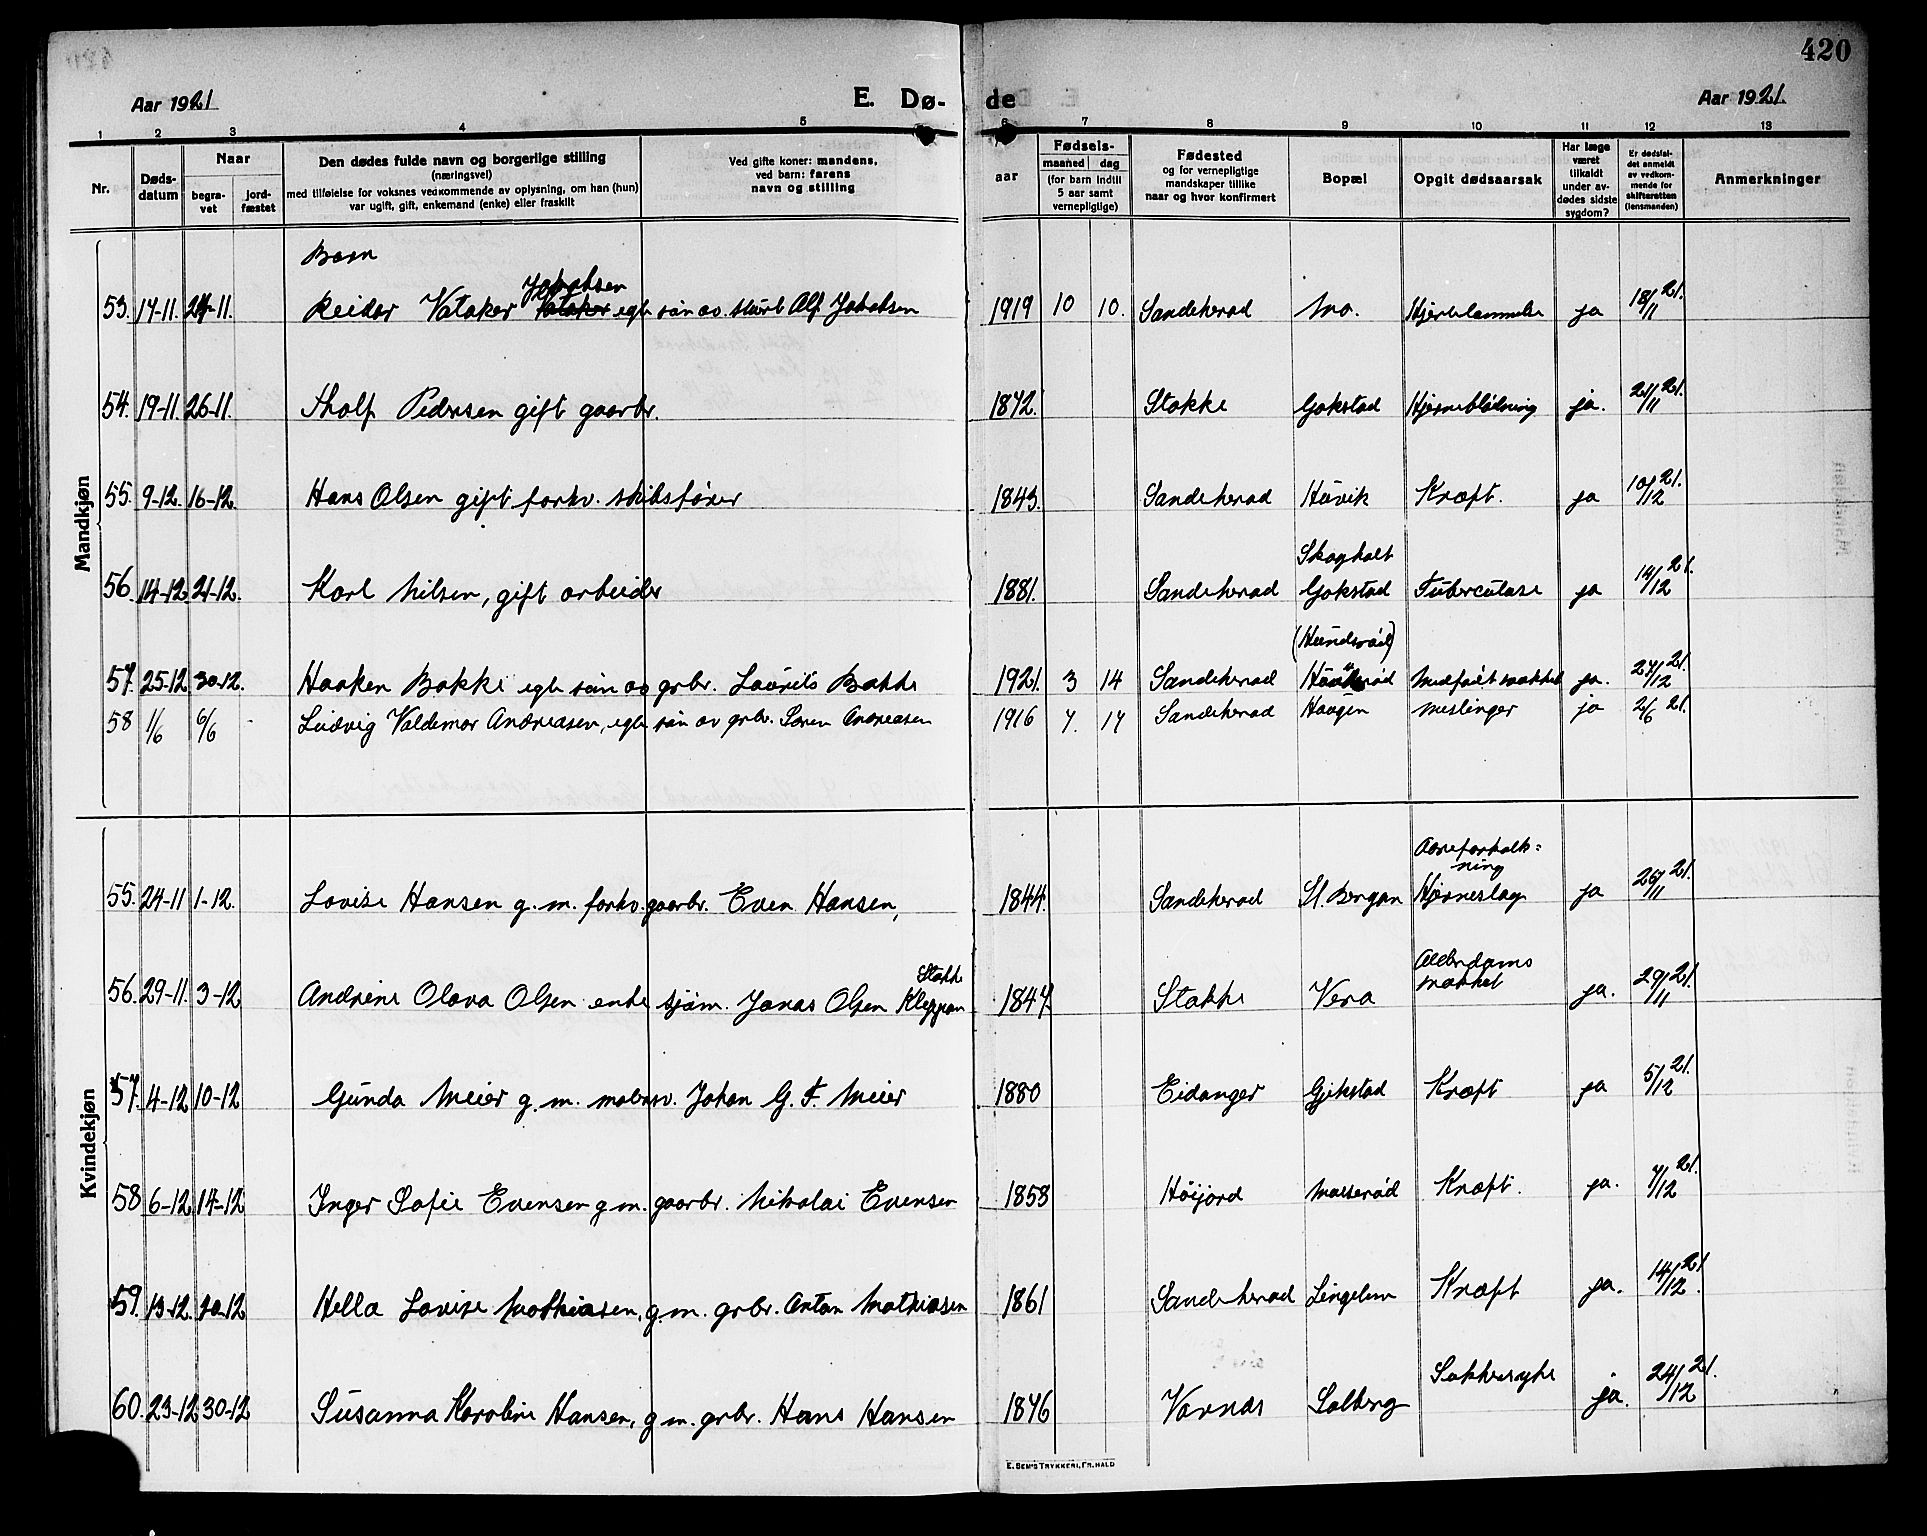 420
Aar 1921 E. Dø- de Aar 1921.
1 2 3 4 5 6 7 8 9 10 11 12 13
Nr.
Døds-
datum
Naar
begra-
vet
jord-
fæstet
Den dødes fulde navn og borgerlige stilling
(næringsvei)
med tilføielse for voksnes vedkommende av oplysning, om han (hun)
var ugift, gift, enkemand (enke) eller fraskilt
Ved gifte koner: mandens,
ved barn: farens
navn og stilling
aar
Fødsels-
maaned dag
(for barn indtil
5 aar samt
vernepligtige)
Fødested
og for vernepligtige
mandskaper tillike
naar og hvor konfirmert
Bopæl
Opgit dødsaarsak
Har læge
været
tilkaldt
under av-
dødes sidste
sygdom?
Er dødsfal-
det anmeldt
av vedkom-
mende for
skifteretten
(lensmanden)
Anmerkninger
Mandkjøn
Barn
Jakobsen
53. 17-11. 24-11. Reidar Vataker egte søn av. Alf Jakobsen 1919 10 10. Sandeherad Mo. Hjertelammelse ja 18/11 21.
54. 19-11. 26-11. Tholf Pedersen gift gaarbr. 1842. Stokke Gokstad Hjerneblødning ja. 21/11 21.
55. 9-12. 16-12. Hans Olsen gift forhv. skibsfører 1843. Sandeherad Haavik Kræft. ja 10/12 21.
Skogholt
56. 14-12. 21-12. Karl Nilsen, gift arbeider 1881. Sandeherad Gokstad Tuberculose ja 14/12 21.
(Hundsrød)
57. 25-12 30-12. Haaken Bakke egte søn av grbr. Laurits Bakke 1921. 3 14 Sandeherad Medfødt svakhet ja. 27/12 21.
58 1/6 6/6 - Ludvig Valdemar Andreasen, egte søn av grbr. Søren Andreasen 1916 7. 17 Sandeherad Haugen meslinger ja 2/6 21.
Kvindekjøn
Aareforkalk=
ning
55. 24-11 1-12. Lovise Hansen g. m. forhv. gaarbr. Even Hansen, 1844. Sandeherad St. Bergan Hjerneslag ja 26/11 21.
Stokke
Alderdoms
56. 29-11. 3-12 Andrine Olava Olsen enke sjøm. Jonas Olsen Kleppan 1847. Stokke Vera svakhet ja. 29/11 21.
57. 4-12 10-12 Gunda Meier g. m. malersv. Johan G. F. Meier 1880 Eidanger Gjekstad Kræft ja 5/12 21.
58 6-12 14-12 Inger Sofie Evensen g m. gaarbr. Nikolai Evensen 1858 Høijord Kræft. ja. 7/12 21.
59. 13-12. 20-12 Hella Lovise Mathiasen, g. m. grbr. Anton Mathiasen 1861 Sandeherad Lingelem Kræft ja. 14/12 21.
60. 23-12 30-12 Susanna Karoline Hansen, g m. grbr. Hans Hansen 1846 Varnes Solberg Sukkersyke ja. 24/12 21.
E. SEM'S TRYKKERI, FR.HALD